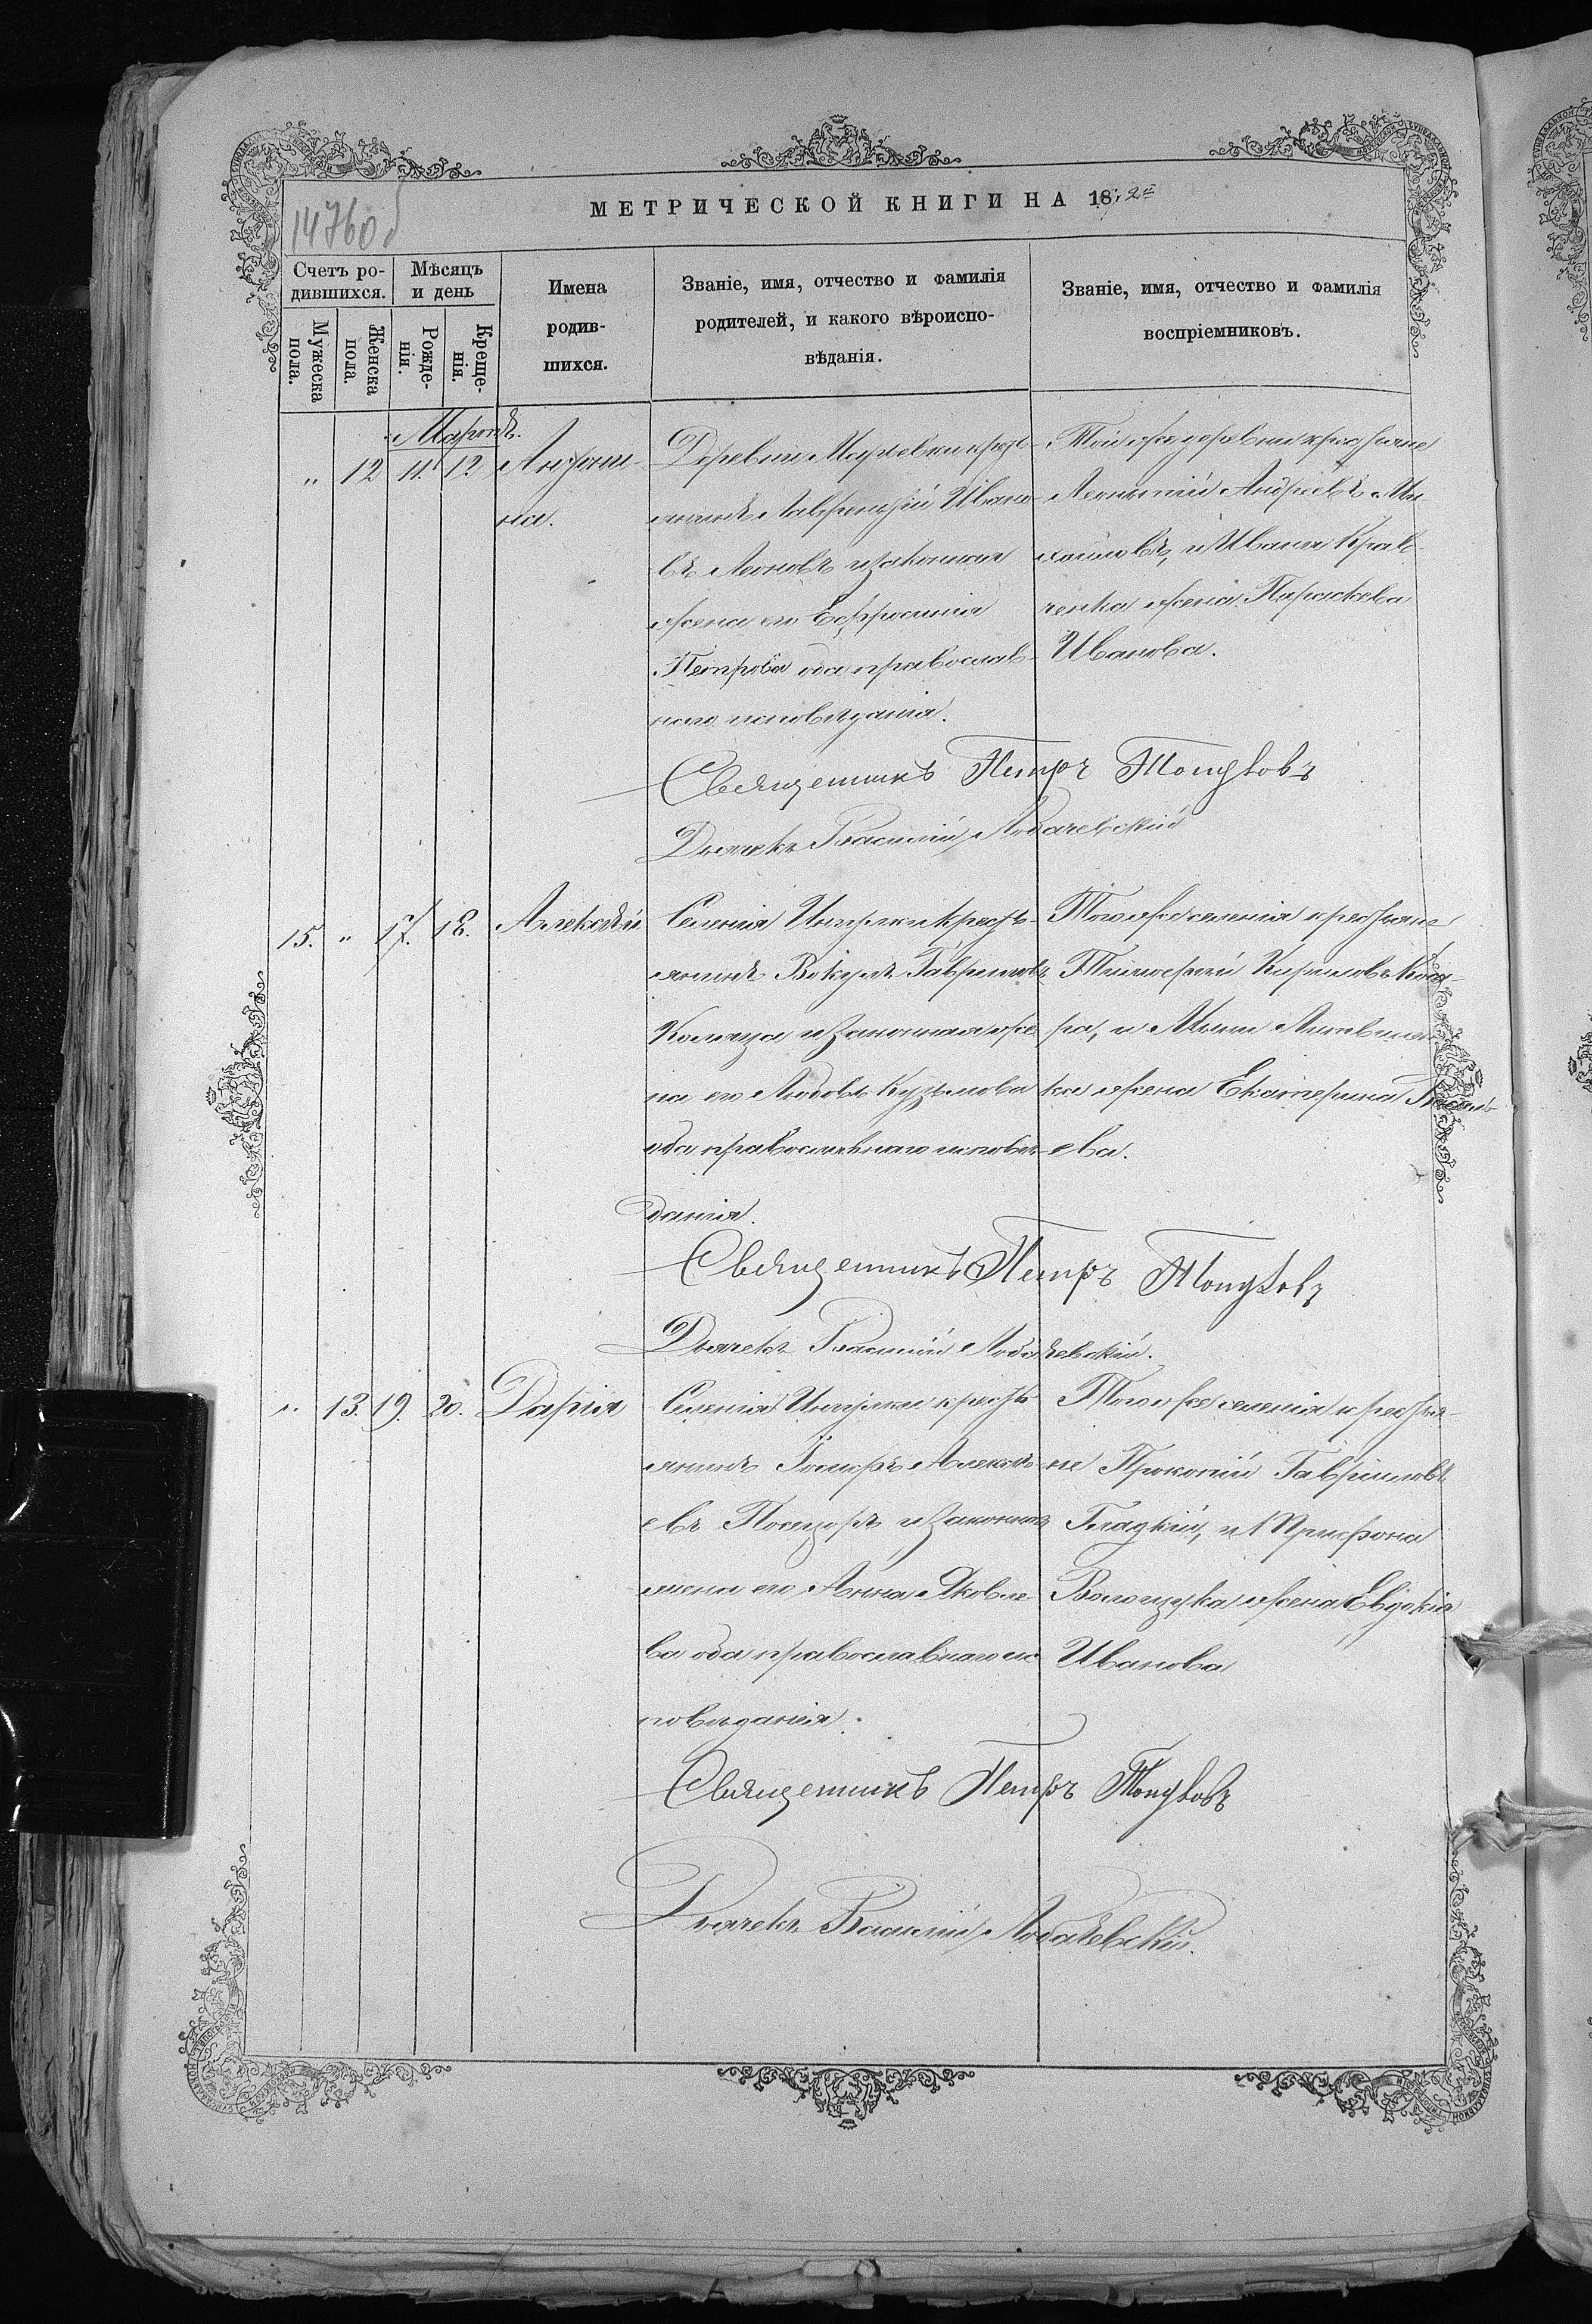 МЕТРИЧЕСКОЙ КНИГИ НА 18
14760
Счетъ ро-
дившихся.
Мѣсяцъ
и день
Мужеска
пола.
Женска
пола.
Рожде-
нія.
Креще-
нія.
Имена
родив-
шихся.
Званіе, имя, отчество и фамилія
родителей, и какого вѣроиспо-
вѣданія.
Званіе, имя, отчество и фамилія
воспріемниковъ.
Мартъ.
" 12 11. 12.
на.
Деревни
янинъ Лаврентій Ивано-
въ Леоновъ и законная
жена его Ефросинія
Петрова оба православ-
наго исповѣданія.
Той же деревни крестьяне
Леонтій Андреевъ Ми-
хайловъ, и Ивана Крав-
ченка жена Параскева
Иванова.
Священникъ Петръ
Дьячекъ Василій Лобачевскій
15. " 17. 18.
Алексѣй
Селенія кресть-
янинъ Вокулъ Гавриловъ
и законная же-
на его Любовь Кузьмова
оба православнаго исповѣ-
данія.
Того же селенія крестьяне
Тимофей Кириловъ
ра, и
ка жена Екатерина
ева.
Священникъ Петръ
Дьячекъ Василій Лобачевскій.
" 13. 19. 20.
Дарія
Селенія кресть-
янинъ Алексѣ-
евъ и законная
жена его Анна Яковле-
ва оба православнаго ис-
повѣданія.
Того же селенія крестья-
не Прокопій Гавриловъ
Гладкій, и Трифона
жена Евдокія
Иванова
Священникъ Петръ
Дьячекъ Василій Лобачевскій.